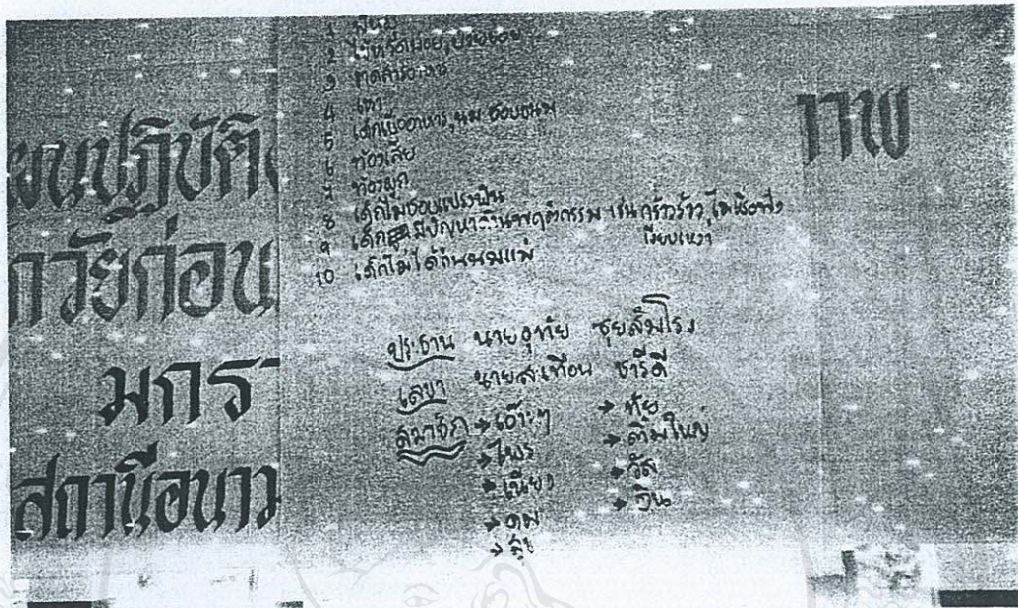 ผนปฏิบัติ
กวัยก่อน
มกรา
สถานีอนาว
าาพ
1 ฟันผุ
2 ไข้หวัดบ่อย, ป่วยบ่อย
3
4 เหา
5 เด็กเบื่ออาหาร, นม ชอบขนม
6 ท้องเสีย
7 ท้องผูก
8 เด็กไม่ชอบแปรงฟัน
9 เด็ก มีปัญหาด้านพฤติกรรม เช่น กร้าวร้าว, ไม่เชื่อฟัง
เงียบเหงา
10 เด็กไม่ได้กินนมแม่
ประธาน นายอุทัย ชุยส้มโรง
เลขา นายสะเทือน ชารีดี
สมาชิก → เอ๊าะๆ → ทัย
→ ไพร → ติ๋มใหญ่
→ เนียง → วัล
→ ดม → วิน
→